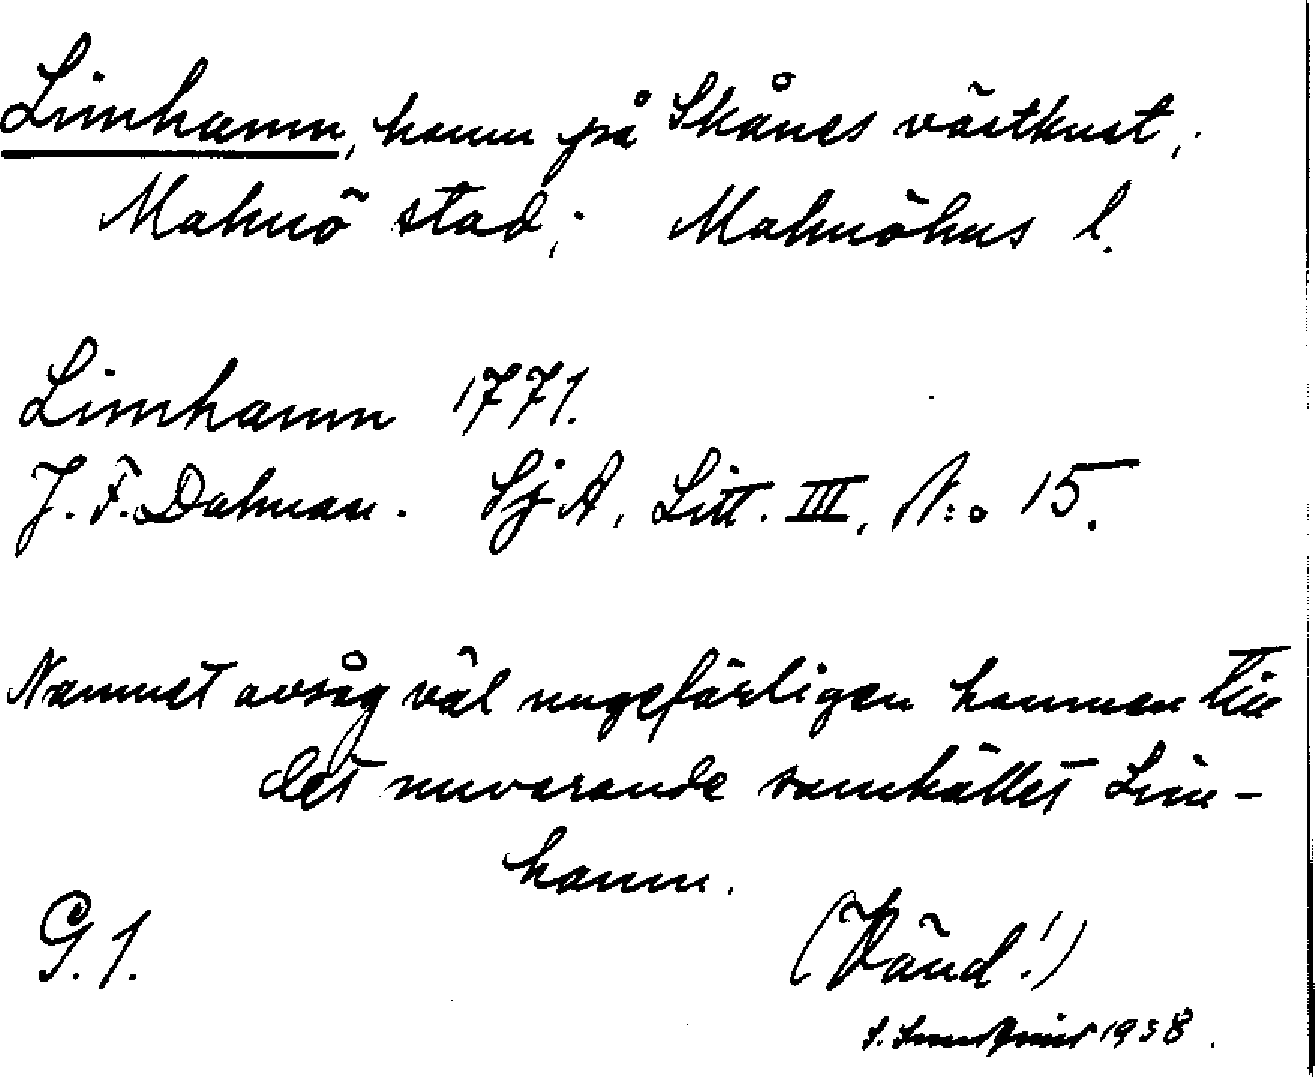 Limhamn, hamn på Skånes västkust,
Malmö stad; Malmöhus l.
Limhamn 1771.
J. F. Dalman. SjA, Litt. III, N:o 15.
Namnet avsåg väl ungefärligen hamnen till
det nuvarande samhället Lim-
hamn.
G. 1.
(Vänd!)
1938.